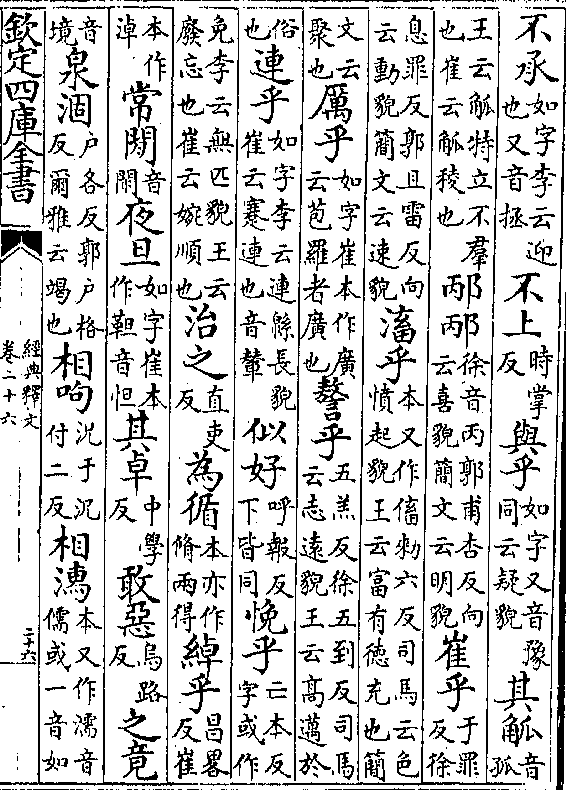 不承如字李云迎也又音拯不上時掌反與乎如字又音豫同云疑貌其觚音孤
王云觚特立不羣也崔云觚稜也邴邴徐音丙郭甫杏反向云喜貌簡文云明貌崔乎于罪反徐
息罪反郭且雷反向云動貌簡文云速貌滀乎本又作傗勑六反司馬云色憤起貌王云富有德充也簡
文云聚也厲乎如字崔本作廣云苞羅者廣也謷乎五羔反徐五到反司馬云志遠貌王云高邁於
俗也連乎如字李云連緜長貌崔云蹇連也音輦似好呼報反下皆同悗乎亡本反字或作
免李云無匹貌王云廢忘也崔云婉順也治之直吏反為循本亦作脩兩得綽乎昌畧反崔
本作淖常音夜旦如字崔本作靼音怛其卓中學反敢惡烏路反之竟
音境泉涸户各反郭户格反爾雅云竭也相呴况于况付二反相本又作濡音儒或一音如
欽定四庫全書
經典釋文
卷二十六
二十六